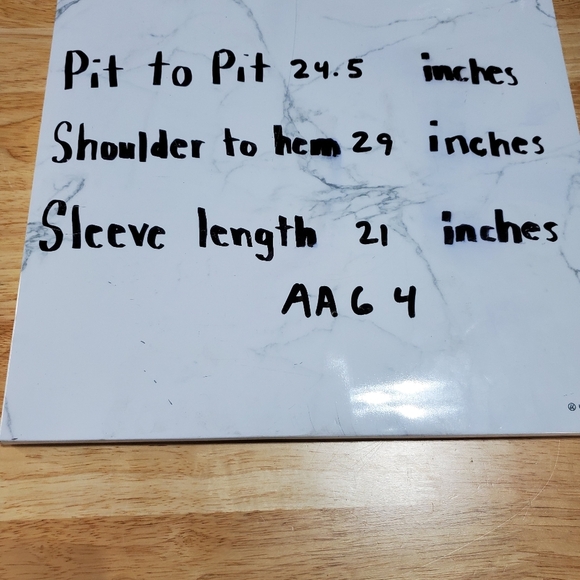 Pit to Pit 24.5 inches
Shoulder to hem 29 inches
Sleeve length 21 inches
AA64
®